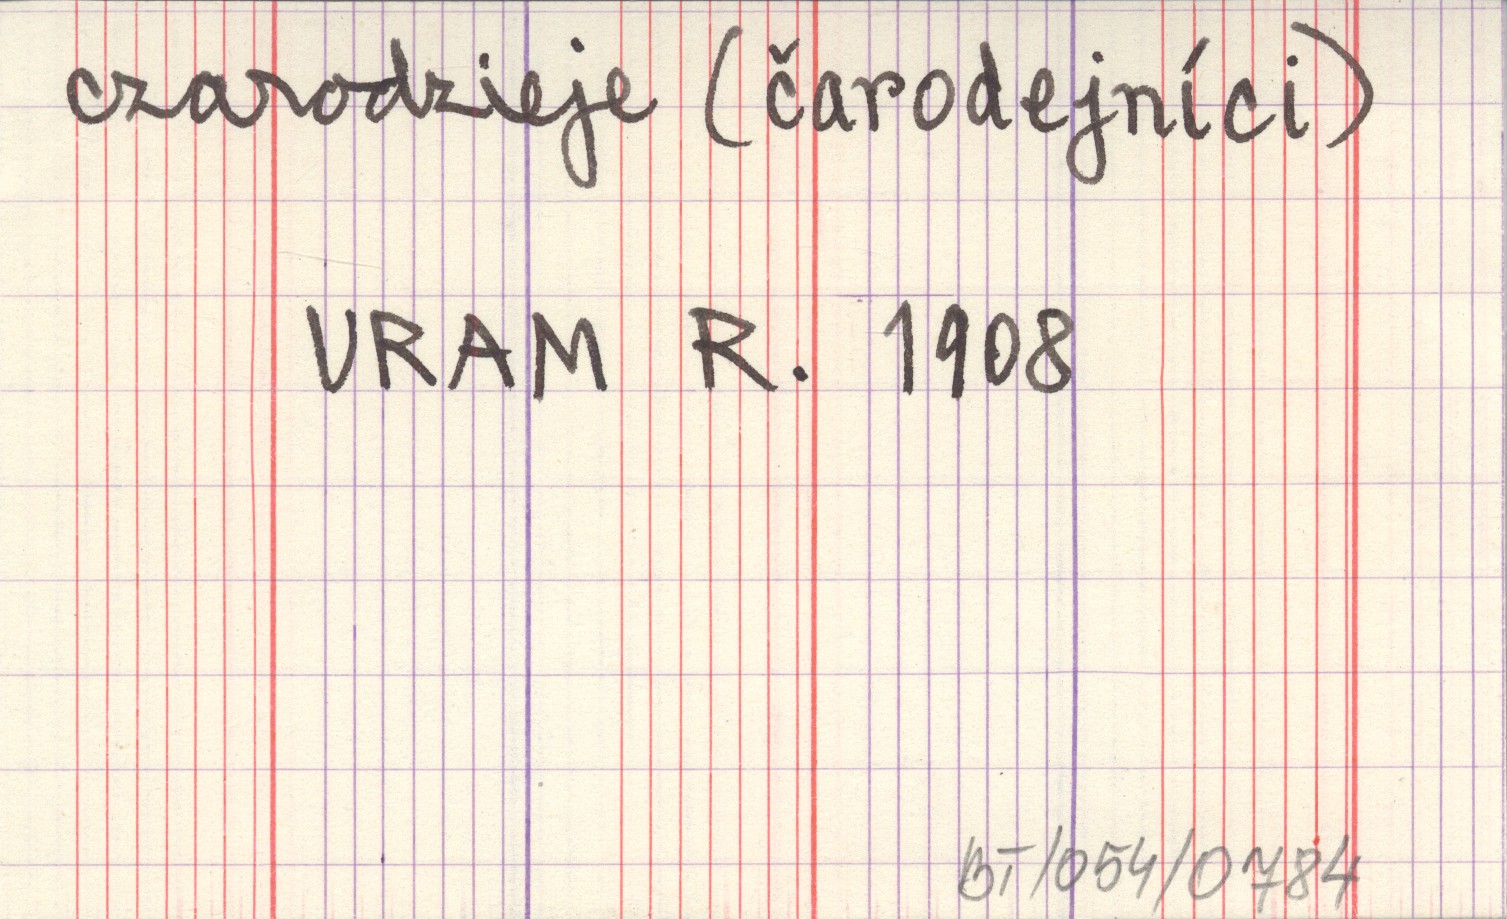 czarodzieje (čarodejníci)
VRAM R. 1908
BT/054/0784